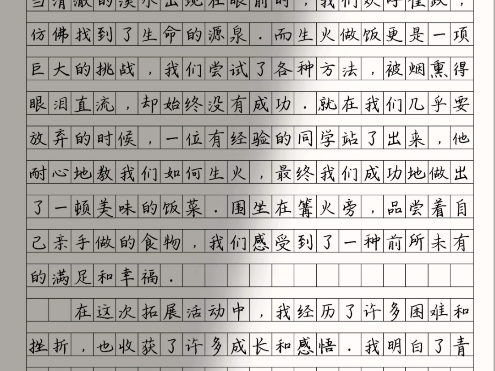 当清澈的溪水出现在眼前时，我们欢呼雀跃，
仿佛找到了生命的源泉．而生火做饭更是一项
巨大的挑战，我们尝试了各种方法，被烟熏得
眼泪直流，却始终没有成功．就在我们几乎要
放弃的时候，一位有经验的同学站了出来，他
耐心地教我们如何生火，最终我们成功地做出
了一顿美味的饭菜．围坐在篝火旁，品尝着自
己亲手做的食物，我们感受到了一种前所未有
的满足和幸福．
在这次拓展活动中，我经历了许多困难和
挫折，也收获了许多成长和感悟．我明白了青